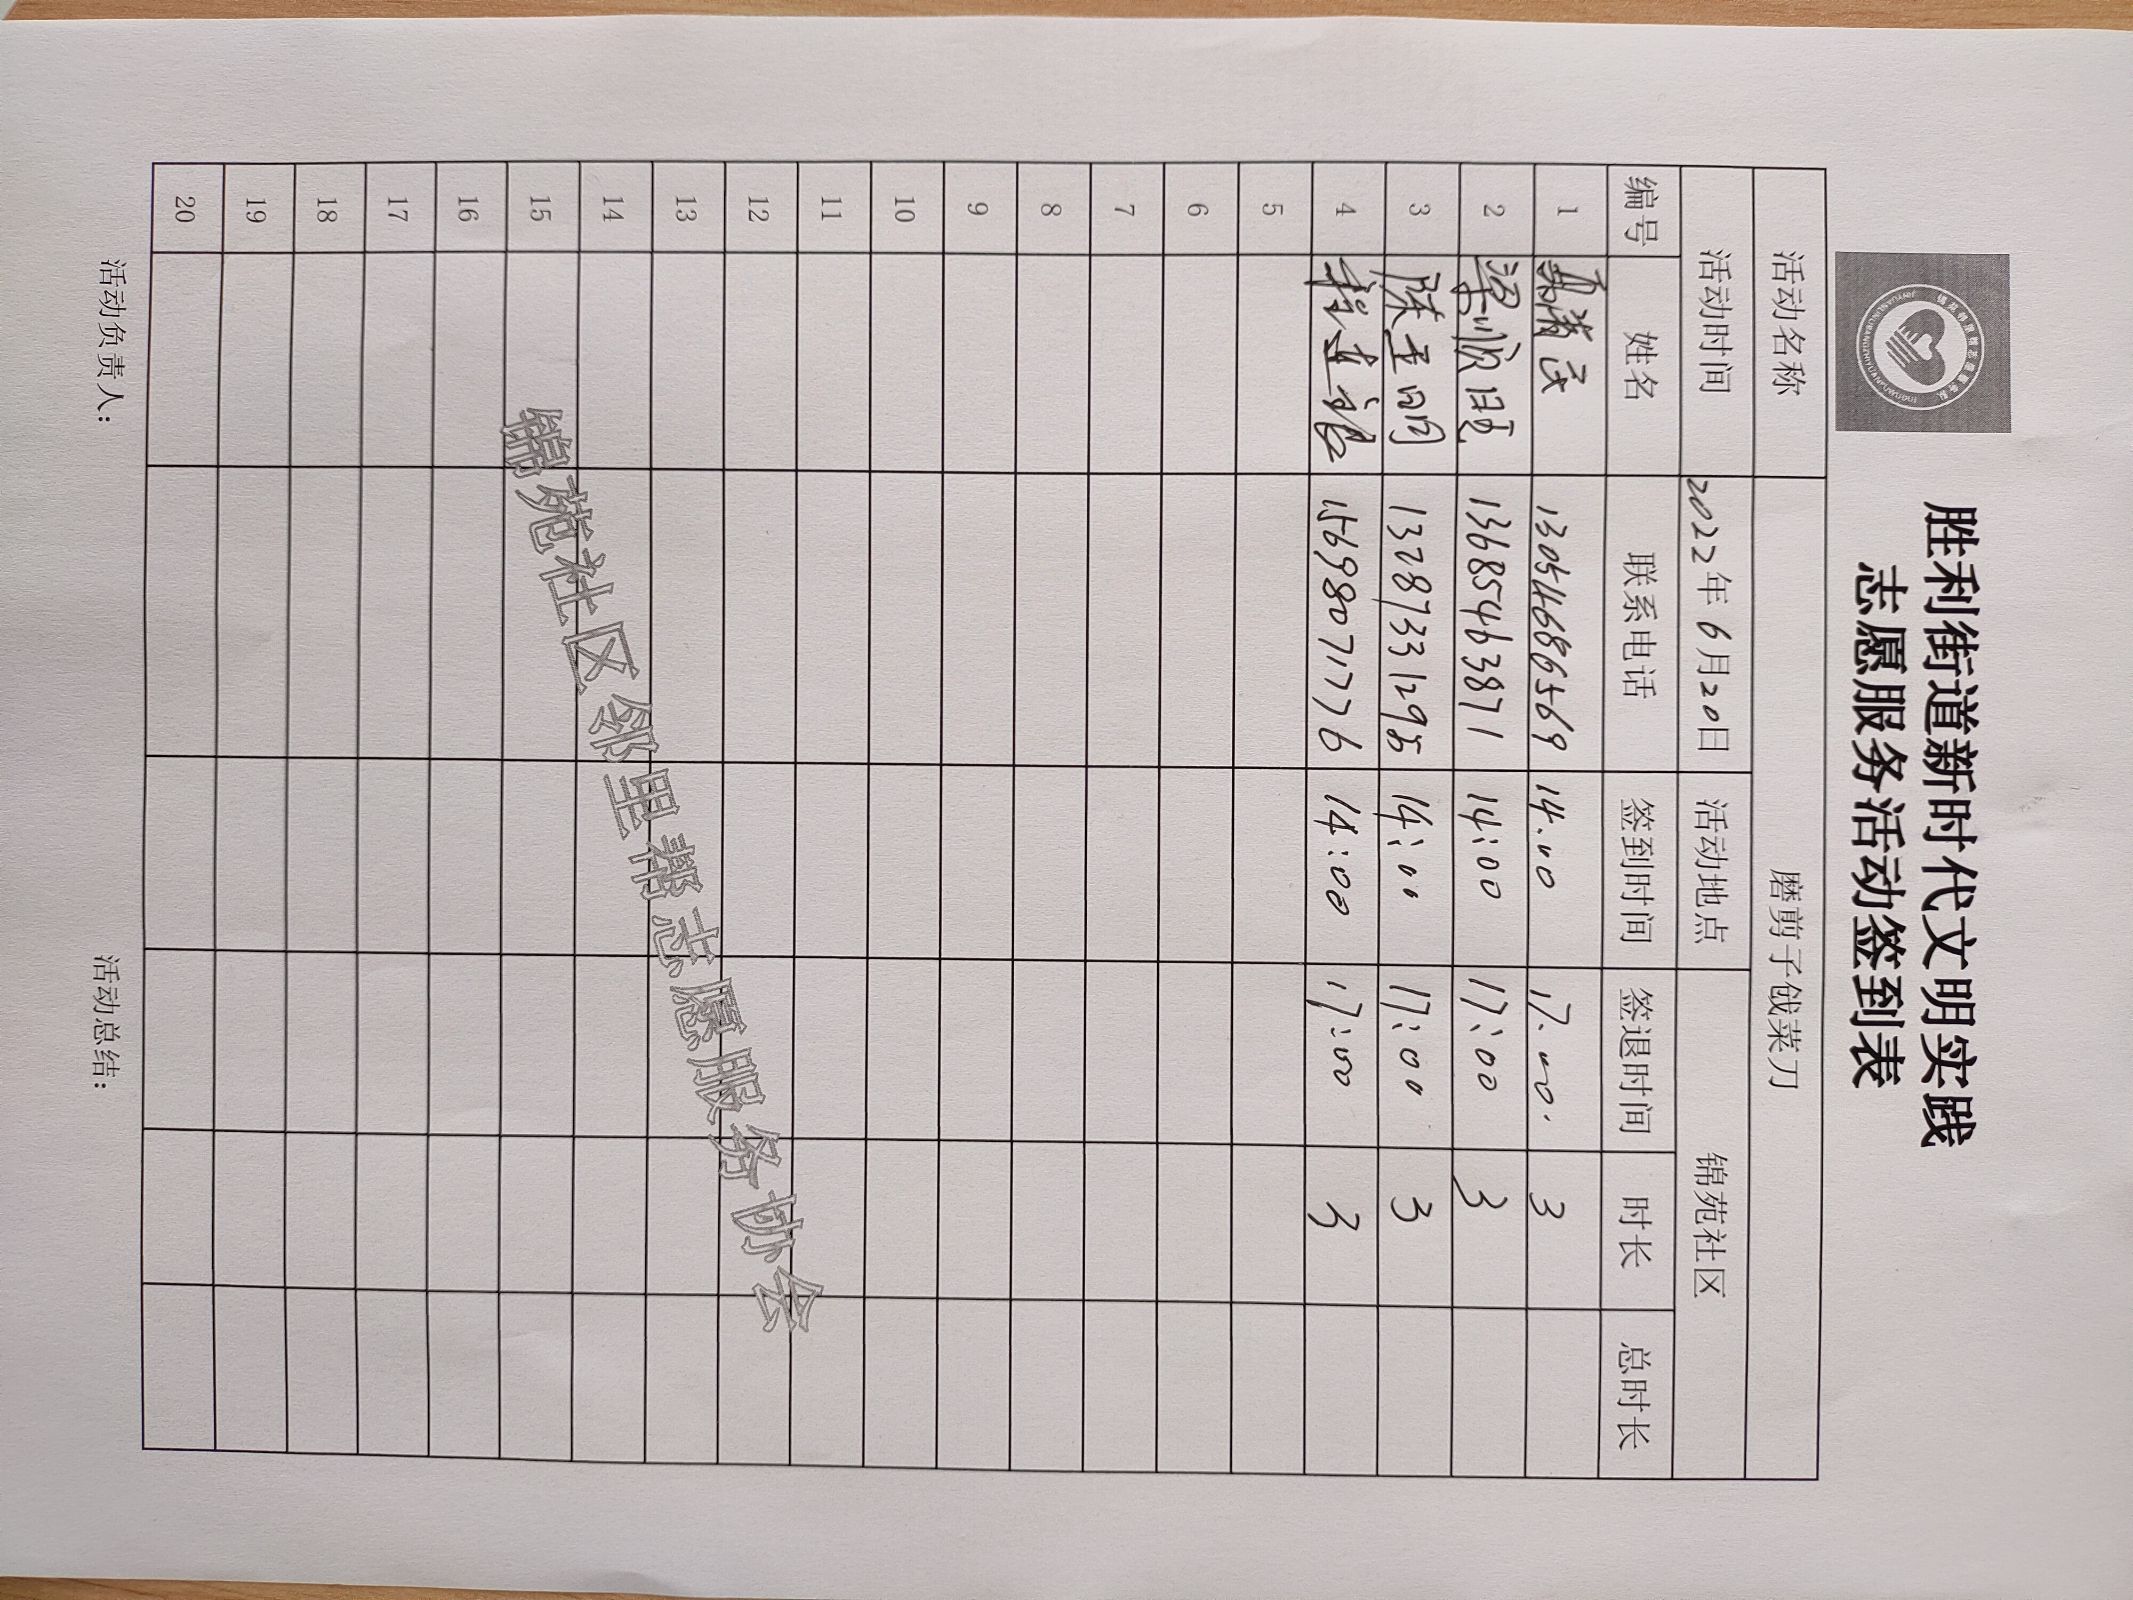 胜利街道新时代文明实践
志愿服务活动签到表
活动名称 磨剪子戗菜刀
活动时间 2022年6月20日 活动地点 锦苑社区
编号 姓名 联系电话 签到时间 签退时间 时长 总时长
1 13054686569 14.00 17.00. 3
2 梁顺 13685463871 14:00 17:00 3
3 陈玉明 13287331295 14:00 17:00 3
4 程连银 15698071776 14:00 17:00 3
5
6
7
8
9
10
11
12
13
14
15
16
17
18
19
20
锦苑社区邻里帮志愿服务协会
活动负责人: 活动总结: